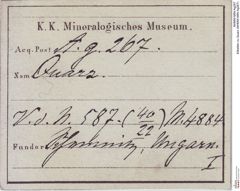 K. K. Mineralogisches Museum.
Acq. Post A. g. 267.
Nam Quarz.
V. d. N. 587. (40/22) M. 4884
Fundort Schemnitz, Ungarn.
I